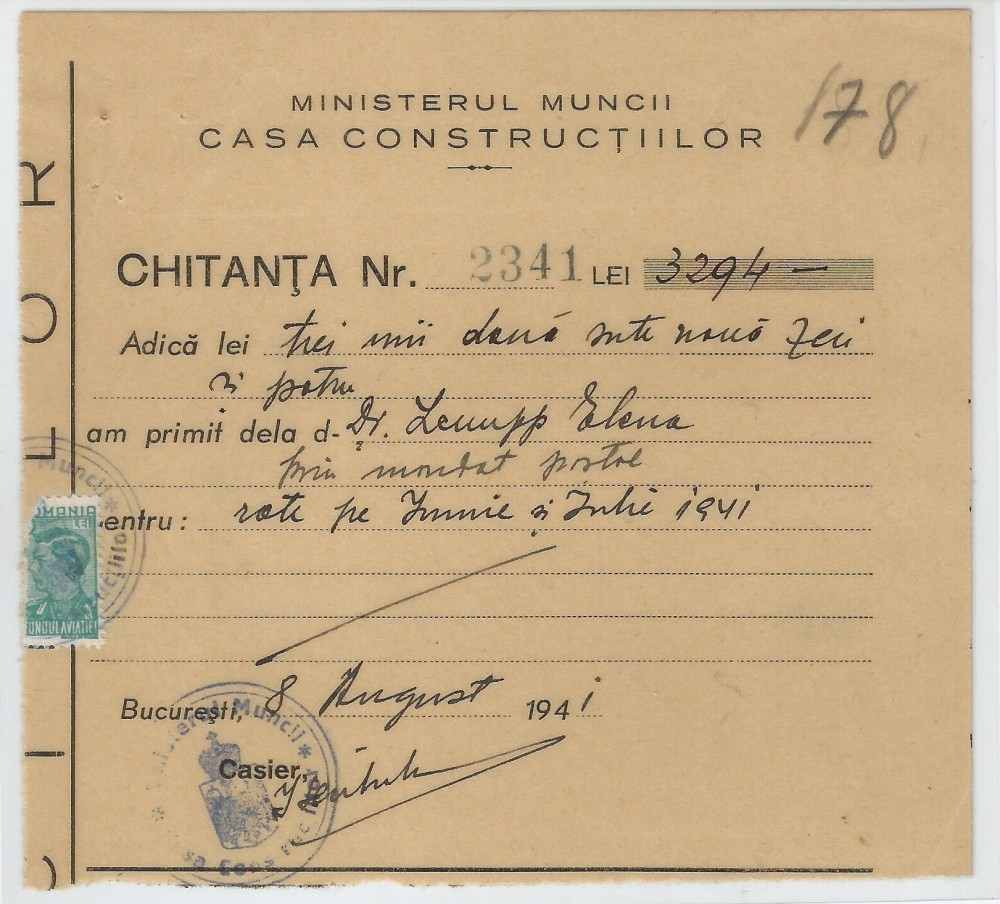 178
MINISTERUL MUNCII
CASA CONSTRUCȚIILOR
CHITANȚA Nr. 2341 LEI 3294 —
Adică lei trei mii două sute nouă zeci
și patru
am primit dela d- Dr. Elena
prin mandat postal
entru: rate pe Iunie și Iulie 1941
București, 8 August 1941
Casier,
OMANIA
LEI
FONDUL AVIAȚIEI
Muncii *
nisterul Muncii *
L O R